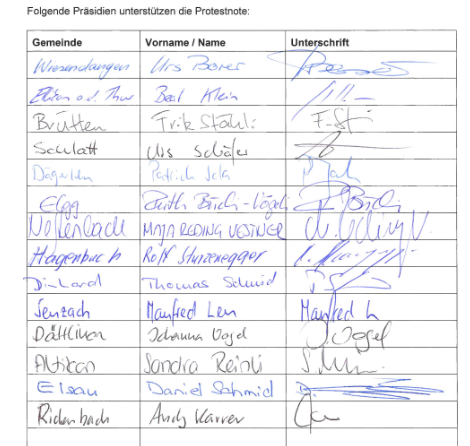 Folgende Präsidien unterstützen die Protestnote:
Gemeinde Vorname / Name Unterschrift
Wiesendangen Urs Borer
Beat Klein
Brütten
Schlatt Urs Schäfer
Dägerlen Patrick
Elgg Ruth Büchi-Vögeli Büchi
Neftenbach MAJA REDING VESTNER
Hagenbuch Rolf Sturzenegger
Dinhard Thomas Schmid
Seuzach Manfred Leu Manfred L
Dättlikon Johanna Vogel J. Vogel
Altikon Sandra Reinli
Elsau Daniel Schmid
Rickenbach Andy Karrer